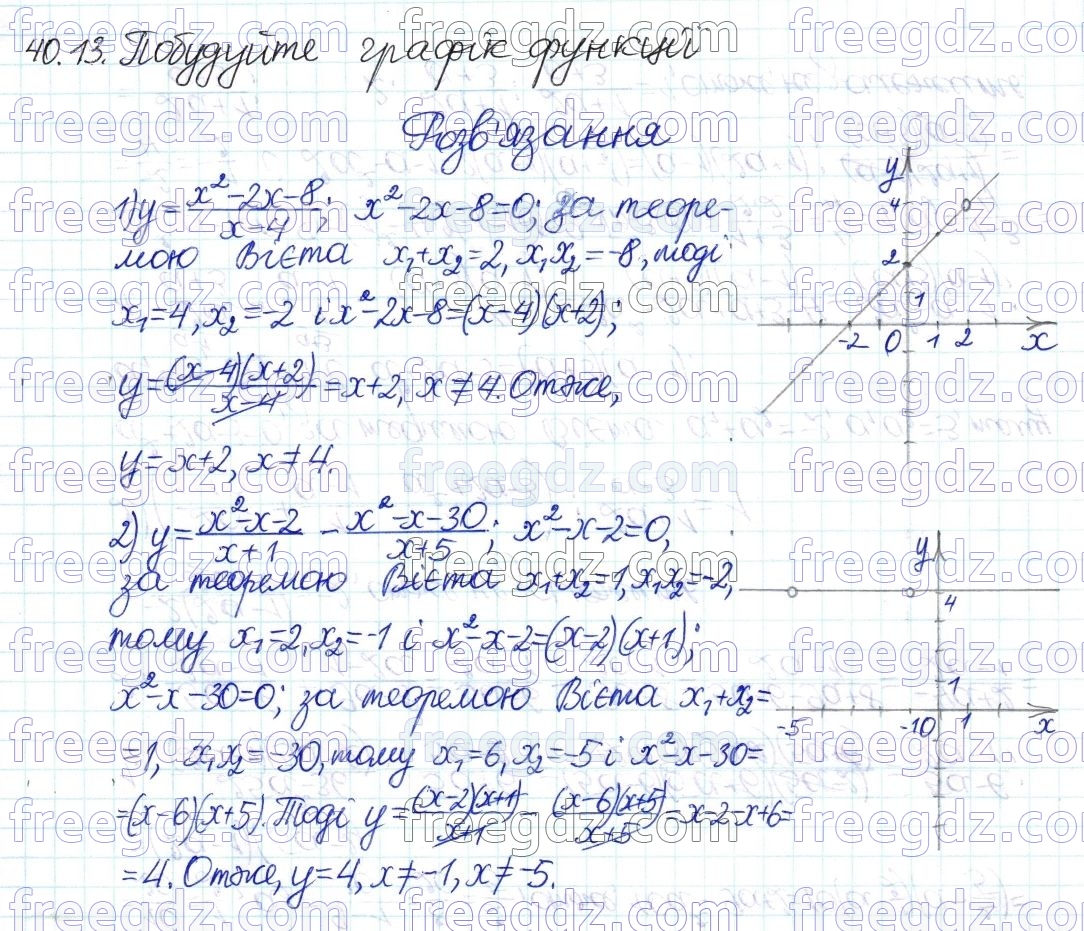 40.13. Побудуйте графік функції
Розв'язання
1) y = (x² - 2x - 8)/(x - 4); x² - 2x - 8 = 0; за теоре-
мою Вієта x₁ + x₂ = 2, x₁x₂ = -8, тоді
x₁ = 4, x₂ = -2 і x² - 2x - 8 = (x - 4)(x + 2);
y = ((x - 4)(x + 2))/(x - 4) = x + 2, x ≠ 4. Отже,
y = x + 2, x ≠ 4.
y
4
2
1
-2 0 1 2 x
2) y = (x² - x - 2)/(x + 1) - (x² - x - 30)/(x + 5); x² - x - 2 = 0,
за теоремою Вієта x₁ + x₂ = 1, x₁x₂ = -2,
тому x₁ = 2, x₂ = -1 і x² - x - 2 = (x - 2)(x + 1);
x² - x - 30 = 0; за теоремою Вієта x₁ + x₂ =
= 1, x₁x₂ = -30, тому x₁ = 6, x₂ = -5 і x² - x - 30 =
= (x - 6)(x + 5). Тоді y = ((x - 2)(x + 1))/(x + 1) - ((x - 6)(x + 5))/(x + 5) = x - 2 - x + 6 =
= 4. Отже, y = 4, x ≠ -1, x ≠ -5.
y
4
1
-5 -1 0 1 x
freegdz.com